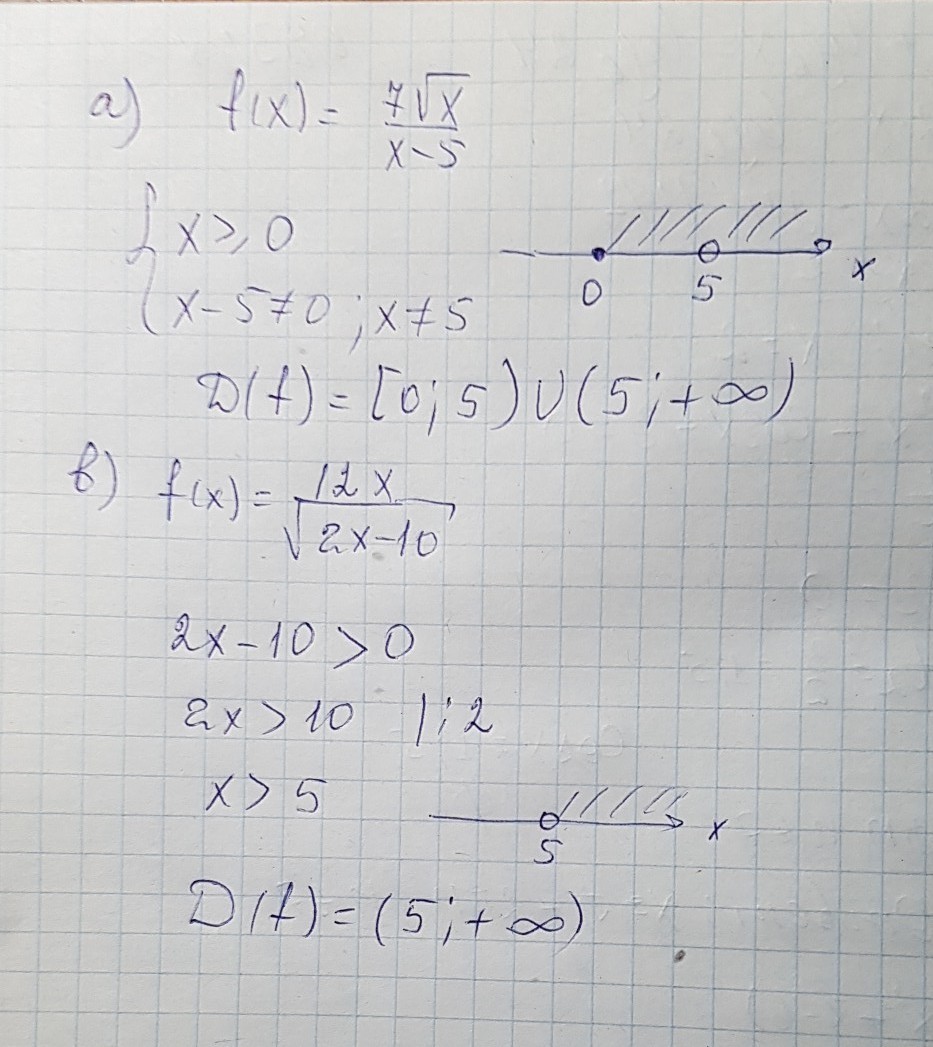 a) f(x) = 7√x / x-5
{ x ≥ 0
x - 5 ≠ 0 ; x ≠ 5
0 5 x
D(f) = [0; 5) ∪ (5; +∞)
в) f(x) = 12x / √2x-10
2x - 10 > 0
2x > 10 | : 2
x > 5
5 x
D(f) = (5; +∞)